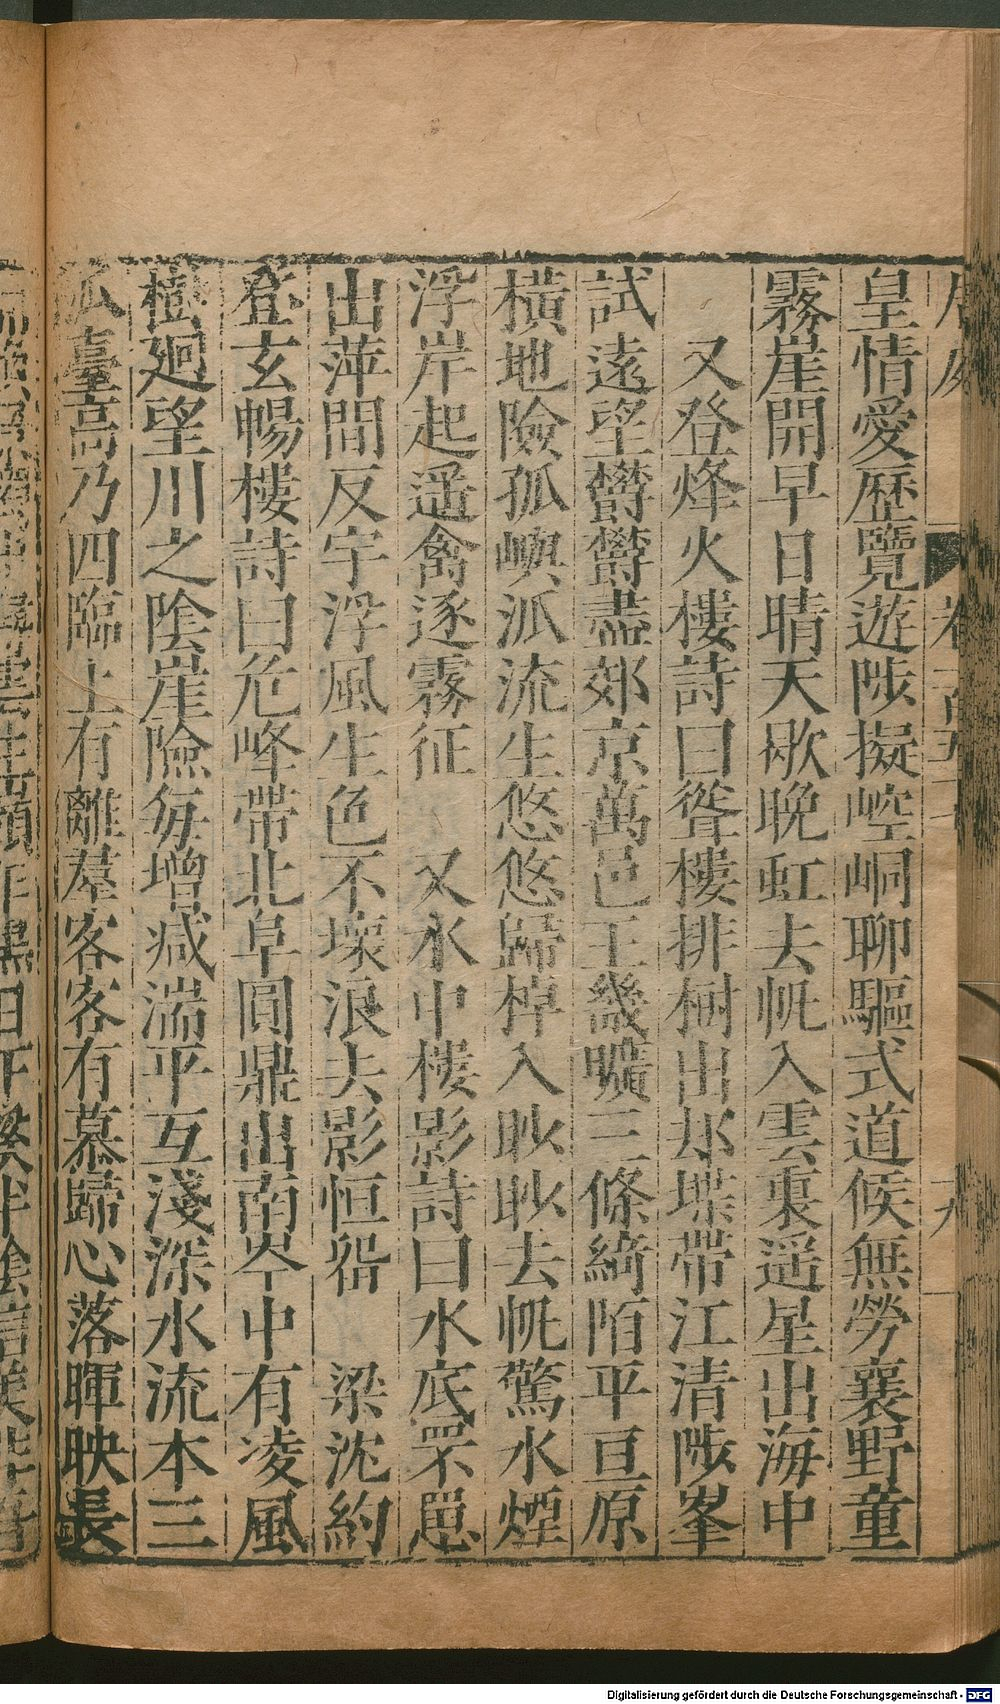 皇情愛歷覽遊陟擬崆峒聊驅式道候無勞襄野童
霧崖開早日晴天歇晚虹去帆入雲裏遥星出海中
又登烽火樓詩曰聳樓排樹出却堞帶江清陟峯
試遠望鬱鬱盡郊京萬邑王畿曠三條綺陌平亘原
橫地險孤嶼派流生悠悠歸棹入眇眇去帆驚水煙
浮岸起遥禽逐霧征 又水中樓影詩曰水底罘罳
出萍間反宇浮風生色不壞浪去影恒留 梁沈約
登玄暢樓詩曰危峰帶北阜圓鼎出南岑中有凌風
樹廻望川之陰崖險每增减湍平互淺深水流本三
派臺高乃四臨上有離羣客客有慕歸心落暉映長
Digitalisierung gefördert durch die Deutsche Forschungsgemeinschaft - DFG